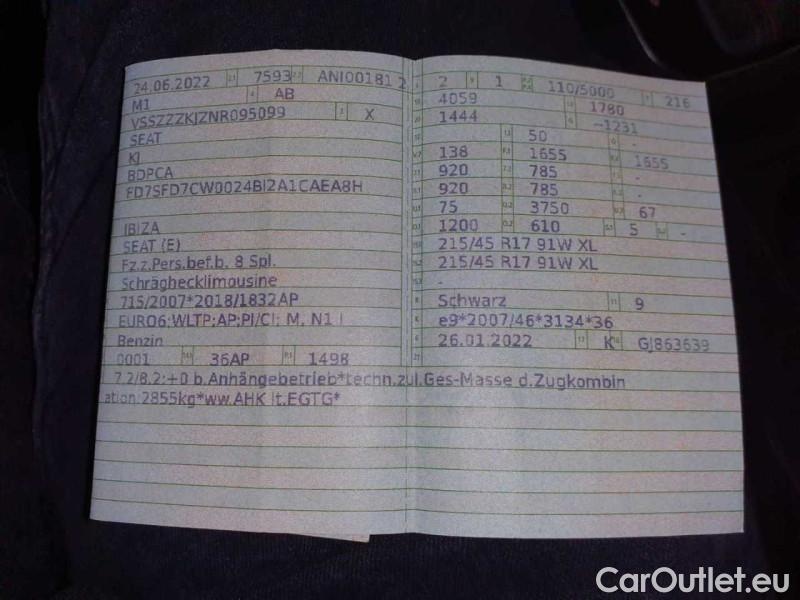 24.06.2022 7593 ANI00181 2
M1 AB
VSSZZZKJZNR095099 X
SEAT
KJ
BDPCA
FD7SFD7CW0024BI2A1CAEA8H
IBIZA
SEAT (E)
Fz.z.Pers.bef.b. 8 Spl.
Schräghecklimousine
715/2007*2018/1832AP
EURO6;WLTP;AP;PI/CI; M, N1 I
Benzin
0001 36AP 1498
7.2/8.2:+0 b.Anhängebetrieb*techn.zul.Ges-Masse d.Zugkombin
ation:2855kg*ww.AHK lt.EGTG*
2 1 110/5000 216
4059 1780
1444 -1231
50 -
138 1655 1655
920 785 -
920 785 -
75 3750 67
1200 610 5 -
215/45 R17 91W XL
215/45 R17 91W XL
-
Schwarz 9
e9*2007/46*3134*36
26.01.2022 K GJ863639
CarOutlet.eu